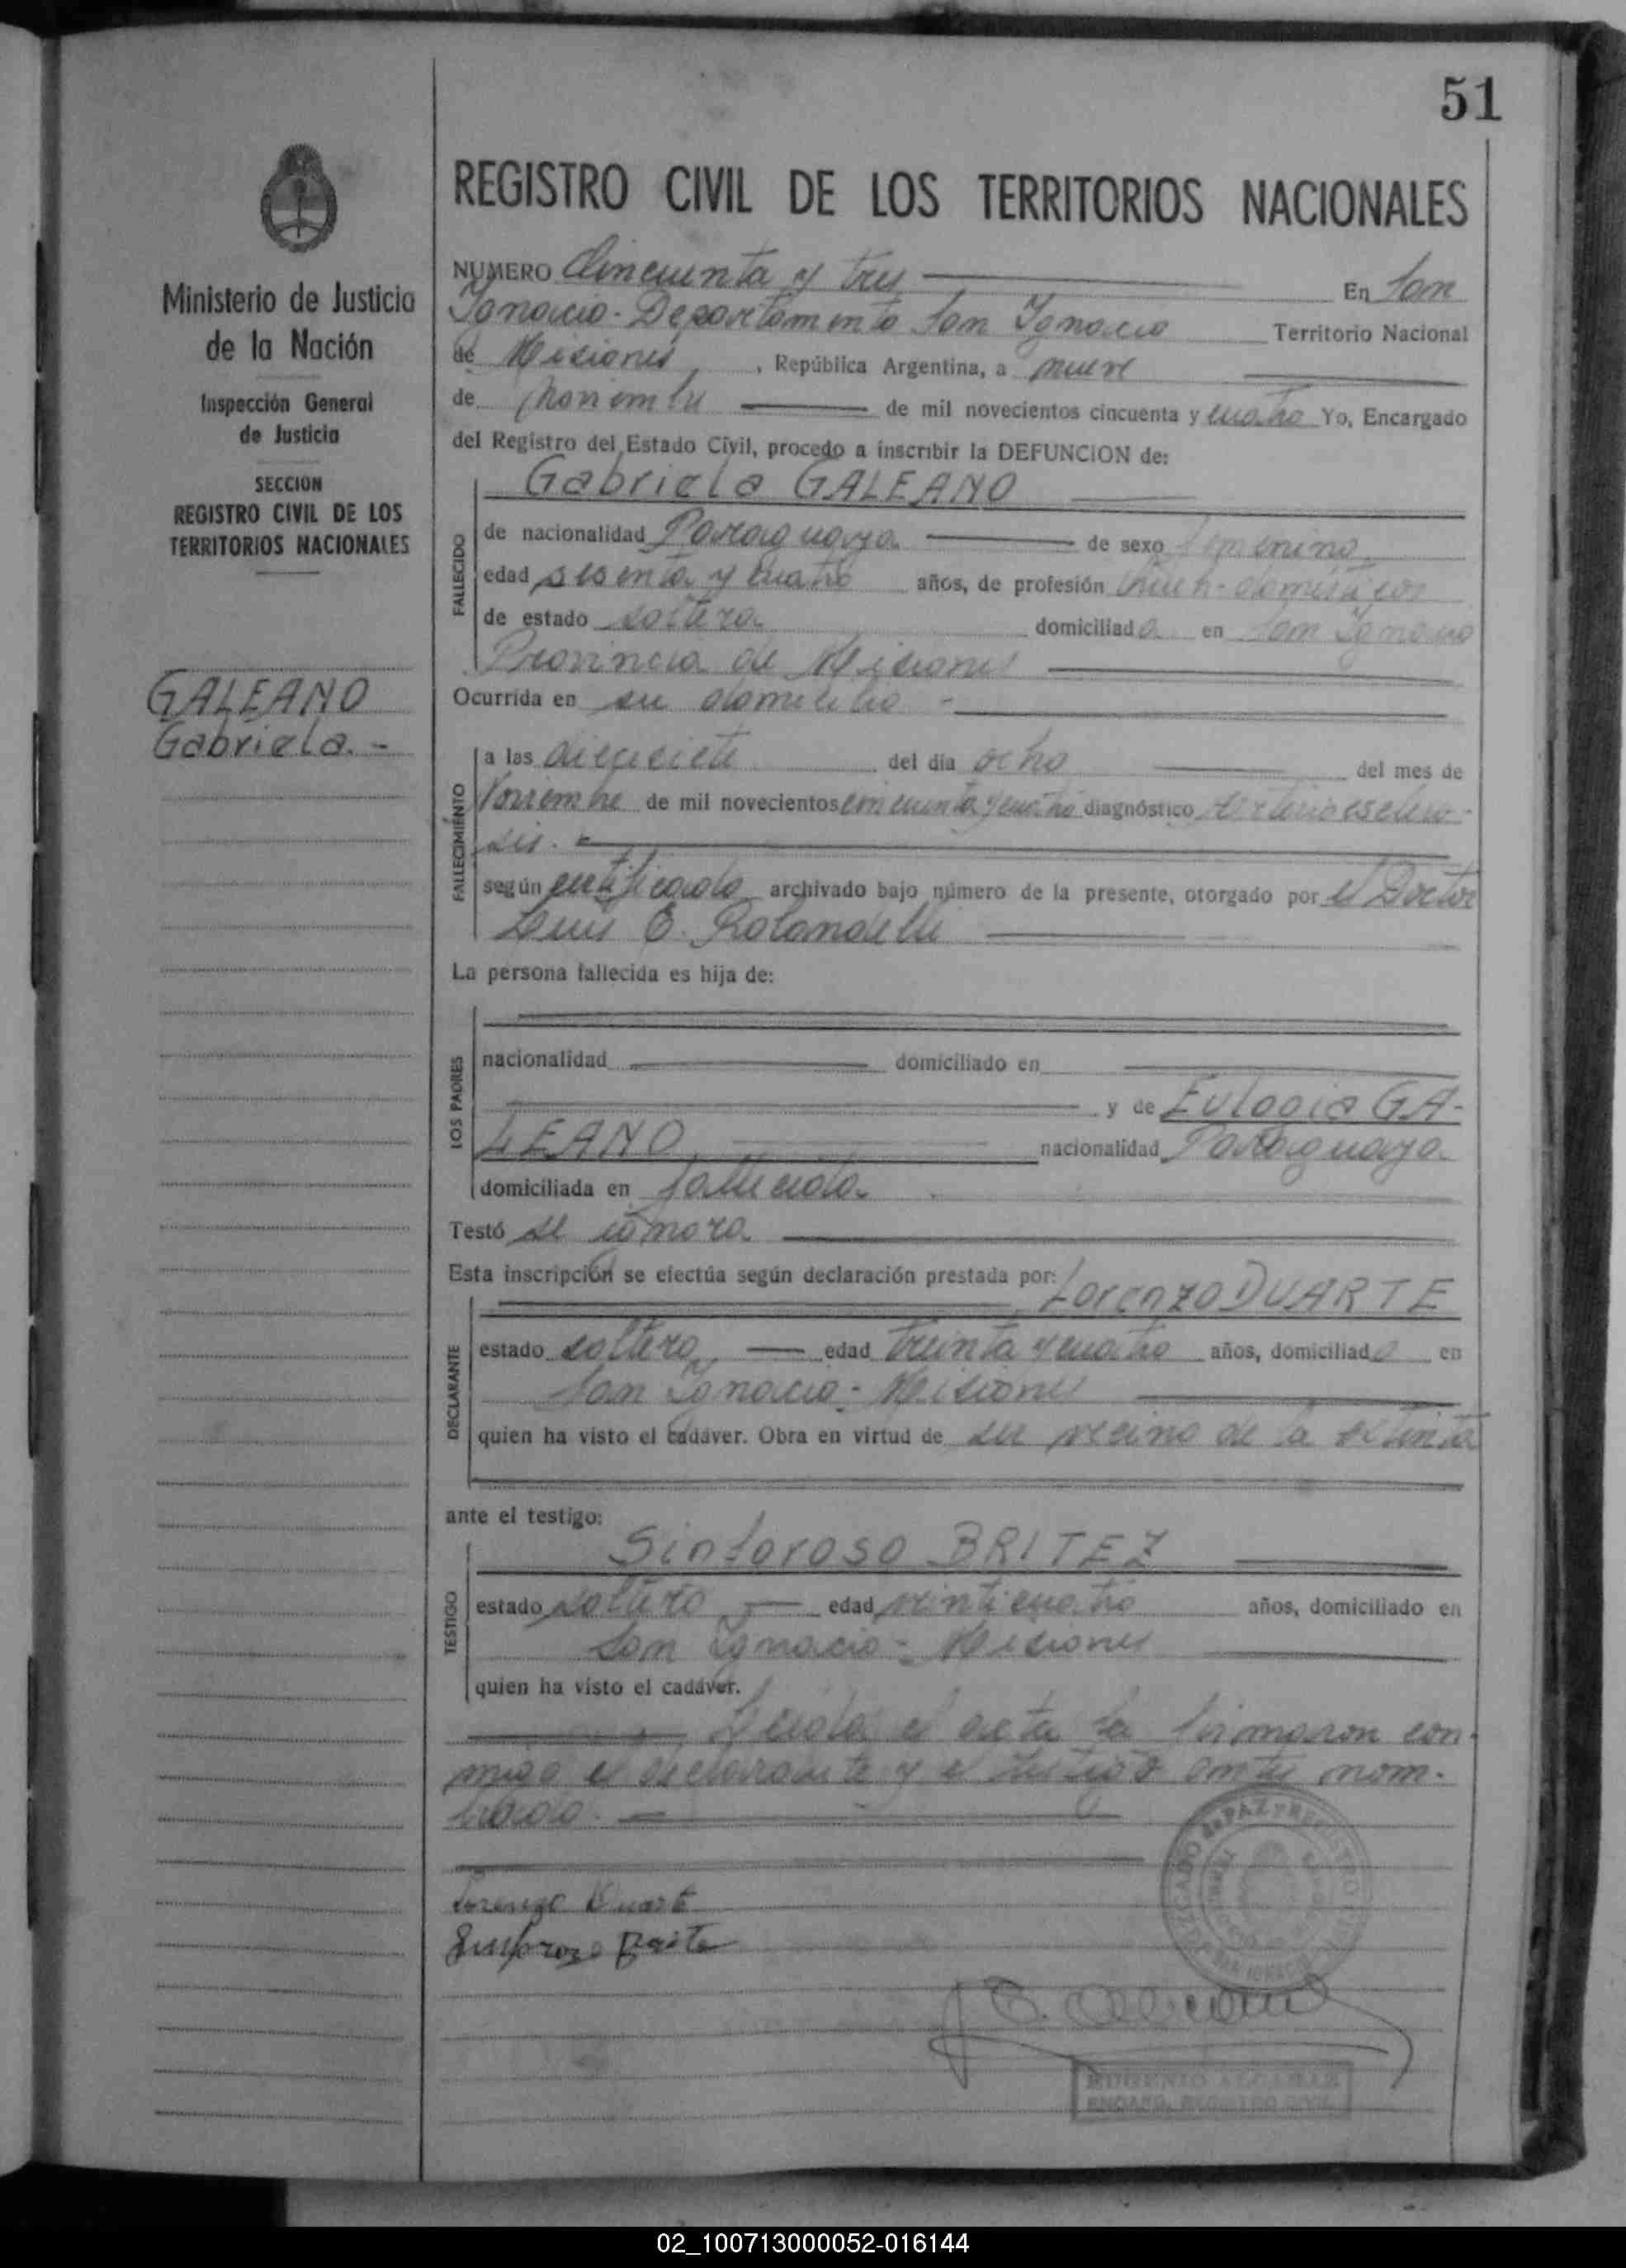 51
REGISTRO CIVIL DE LOS TERRITORIOS NACIONALES
Ministerio de Justicia
de la Nación
Inspección General
de Justicia
SECCION
REGISTRO CIVIL DE LOS
TERRITORIOS NACIONALES
GALEANO
Gabriela. -
NUMERO Cincuenta y tres En San
Ignacio - Departamento San Ignacio Territorio Nacional
de Misiones, República Argentina, a nueve
de noviembre de mil novecientos cincuenta y cuatro Yo, Encargado
del Registro del Estado Civil, procedo a inscribir la DEFUNCION de:
Gabriela GALEANO
FALLECIDO
de nacionalidad Paraguaya de sexo femenino
edad sesenta y cuatro años, de profesión domésticos
de estado soltera domiciliada en San Ignacio
Provincia de Misiones
Ocurrida en su domicilio -
FALLECIMIENTO
a las diecisiete del día ocho del mes de
Noviembre de mil novecientos cincuenta y cuatro diagnóstico Arterioesclero-
sis.
según certificado archivado bajo número de la presente, otorgado por el Doctor
Luis E. Rolandelli
La persona fallecida es hija de:
LOS PADRES
nacionalidad domiciliado en
y de Eulogia GA-
LEANO nacionalidad Paraguaya
domiciliada en fallecida
Testó se ignora
Esta inscripción se efectúa según declaración prestada por:
Lorenzo DUARTE
DECLARANTE
estado soltero edad treinta y cuatro años, domiciliado en
San Ignacio - Misiones
quien ha visto el cadáver. Obra en virtud de ser vecino de la extinta
ante el testigo:
Sinforoso BRITEZ
TESTIGO
estado soltero edad veinticuatro años, domiciliado en
San Ignacio - Misiones
quien ha visto el cadáver.
Leída el acta la firmaron con-
migo el declarante y el testigo antes nom-
brado.
Lorenzo Duarte
JUZGADO de PAZ y REGISTRO CIVIL
SAN IGNACIO
EUGENIO ALCARAZ
ENCARG. REGISTRO CIVIL
02_100713000052-016144